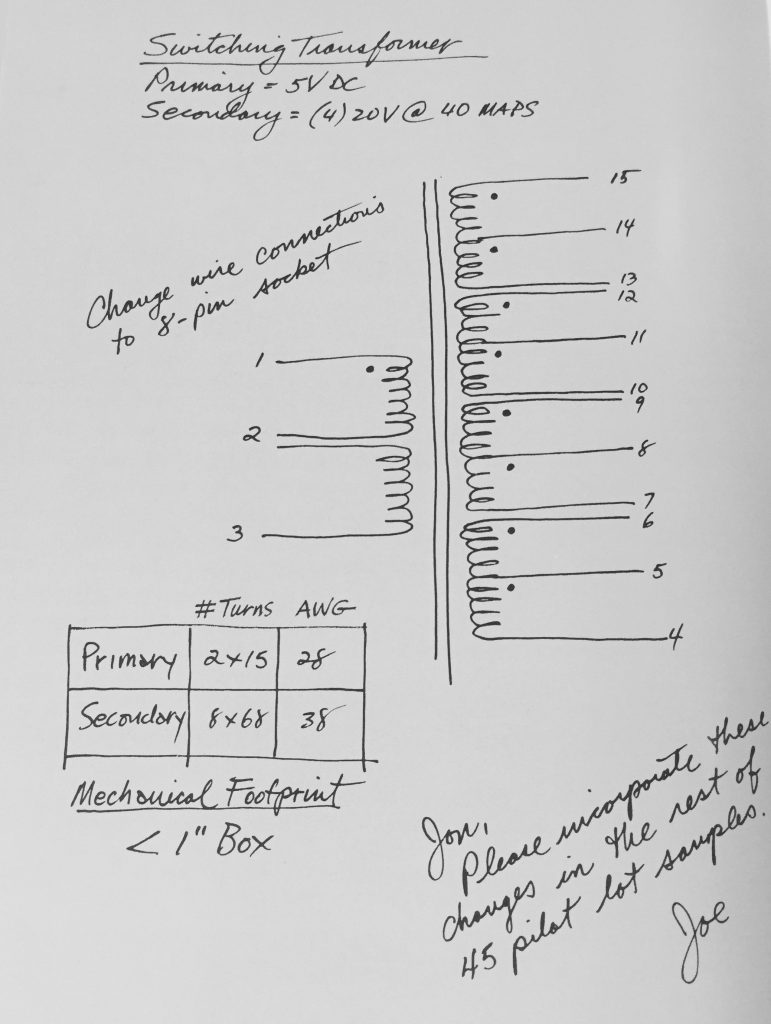 Switching Transformer
Primary = 5V DC
Secondary = (4) 20V @ 40 MAPS
Change wire connections
to 8-pin socket
1
2
3
15
14
13
12
11
10
9
8
7
6
5
4
# Turns AWG
Primary 2x15 28
Secondary 8x68 38
Mechanical Footprint
< 1" Box
Jon,
Please incorporate these
changes in the rest of
45 pilot lot samples.
Joe